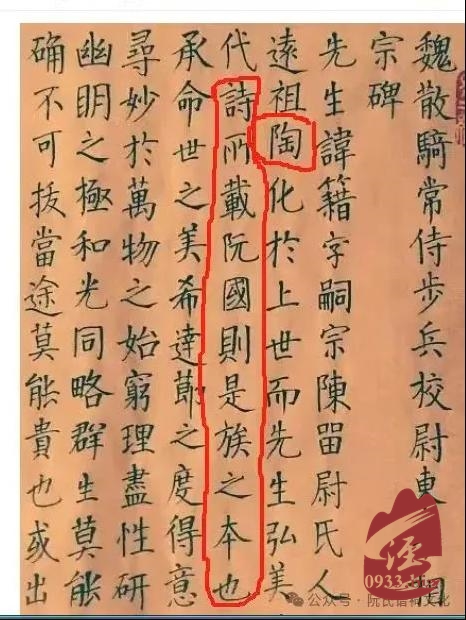 魏散騎常侍步兵校尉東
宗碑
先生諱籍字嗣宗陳留尉氏人
遠祖陶化於上世而先生弘美
代詩所載阮國則是族之本也
承命世之美希達節之度得意
尋妙於萬物之始窮理盡性研
幽明之極和光同略群生莫能
确不可拔當途莫能貴也或出
0933
公众号·阮氏谱祠文化